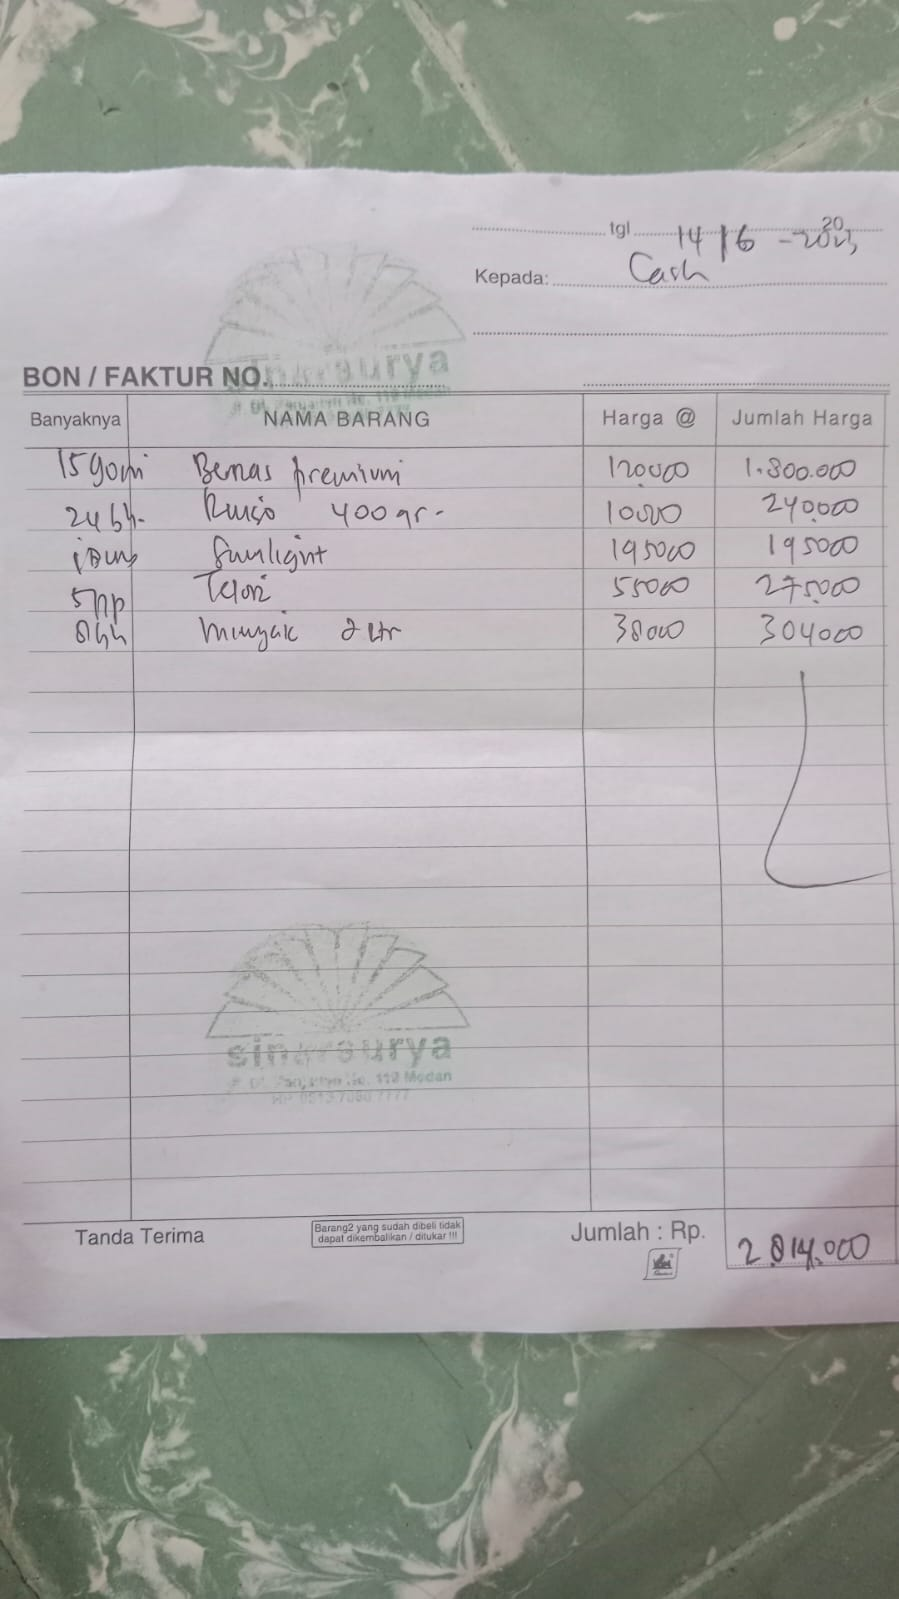 tgl 14/6 - 2023 20
Kepada: Cash
sinarsurya
BON / FAKTUR NO.
Banyaknya NAMA BARANG Harga @ Jumlah Harga
15 goni Beras premium 120.000 1.800.000
24 bh- 400 gr- 10000 240.000
Sunlight 195000 195000
5 pp Telor 55000 275.000
8 bh Minyak 2 ltr 38000 304000
sinarsurya
No. 119 Medan
Tanda Terima
Barang2 yang sudah dibeli tidak
dapat dikembalikan / ditukar !!!
Jumlah : Rp. 2.814.000